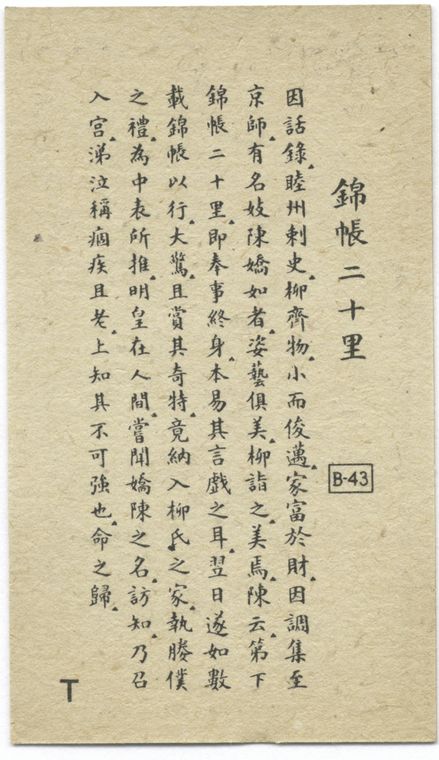 錦帳二十里
B-43
因話錄睦州刺史柳齊物小而俊邁家富於財因調集至
京師有名妓陳嬌如者姿藝俱美柳詣之美焉陳云第下
錦帳二十里即奉事終身本易其言戲之耳翌日遂如數
載錦帳以行大驚且賞其奇特竟納入柳氏之家執媵僕
之禮為中表所推明皇在人間嘗聞嬌陳之名訪知乃召
入宮涕泣稱痼疾且老上知其不可強也命之歸
T